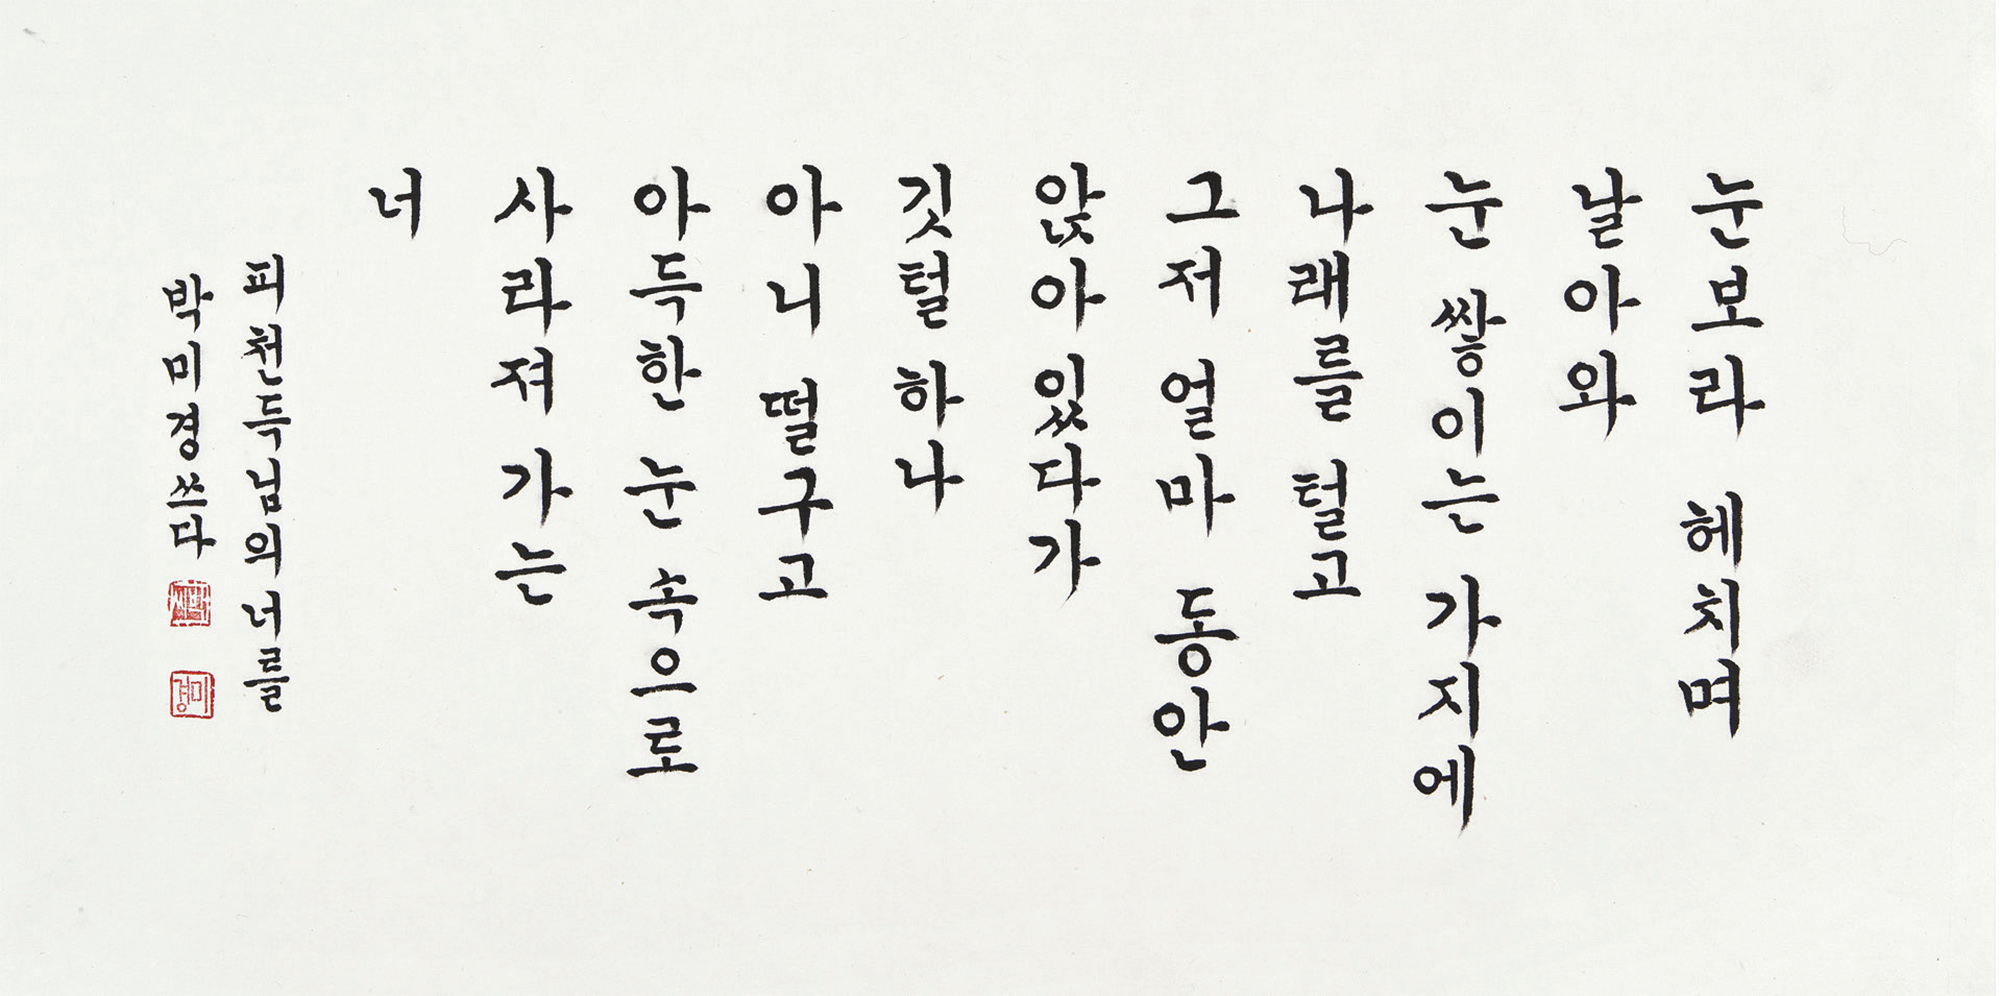 눈보라 헤치며
날아와
눈 쌓이는 가지에
나래를 털고
그저 얼마 동안
앉아 있다가
깃털 하나
아니 떨구고
아득한 눈 속으로
사라져 가는
너
피천득님의 너를
박미경 쓰다
미경